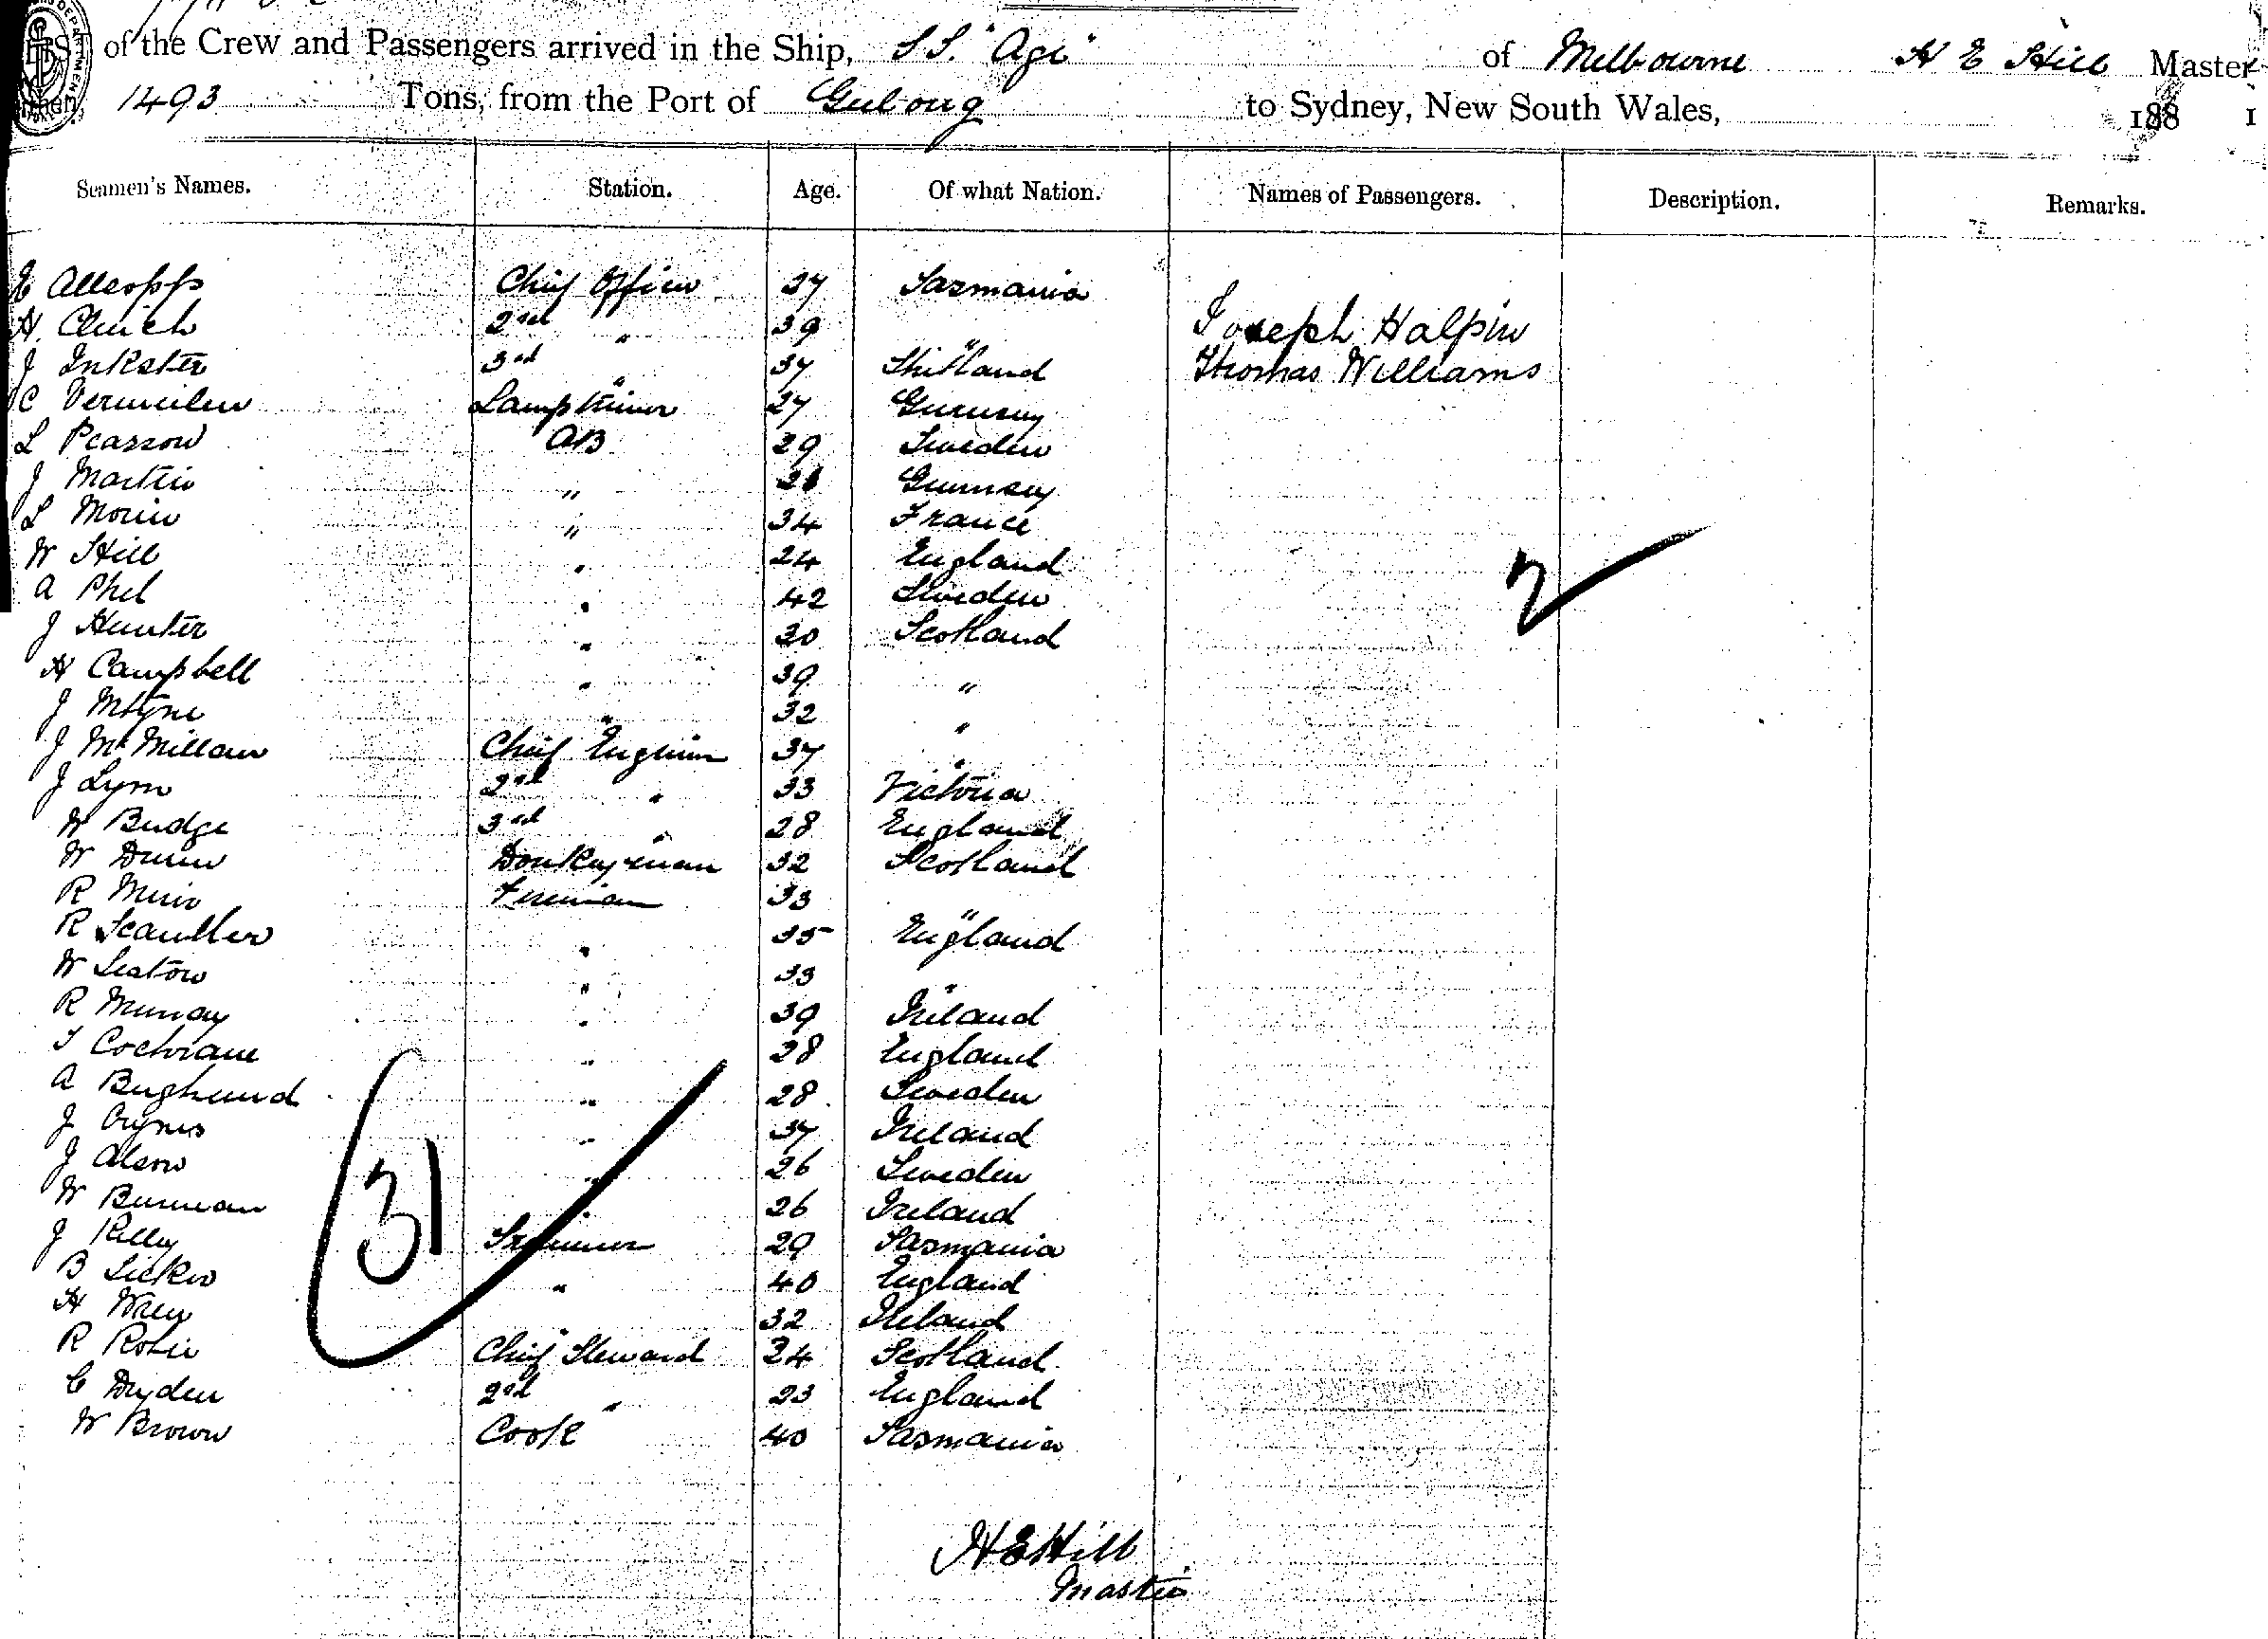 LIST of the Crew and Passengers arrived in the Ship, S.S. "Age" of Melbourne H E Hill Master
Burthen, 1493 Tons, from the Port of Geelong to Sydney, New South Wales, 188 1
Seamen's Names. Station. Age. Of what Nation. Names of Passengers. Description. Remarks.
E Allsopp Chief Officer 37 Tasmania
H. Church 2nd " 39 " Joseph Halpin
J Inkster 3rd " 37 Shetland Thomas Williams
C Vermeilen Lamptrimer 27 Guernsey
L Pearson AB 29 Sweden
J Martin " 21 Guernsey
L Morin " 34 France
W Hill " 24 England
A Phel " 42 Sweden
J Hunter " 30 Scotland
H Campbell " 39 "
J " 32 "
J McMillan Chief Engineer 37 "
J Lyon 2nd " 33 Victoria
W Budge 3rd " 28 England
W Dunn Donkeyman 32 Scotland
R Muir Fireman 33 "
R " 35 England
W Seaton " 33 "
R Murray " 39 Ireland
T Cochrane " 28 England
A Berglund " 28 Sweden
J " 37 Ireland
J Alson " 26 Sweden
W " 26 Ireland
J Kelly Trimmer 29 Tasmania
B " 40 England
H Wren " 32 Ireland
R Chief Steward 34 Scotland
C Dryden 2nd " 23 England
W Brown Cook 40 Tasmania
2
31
H E Hill
Master